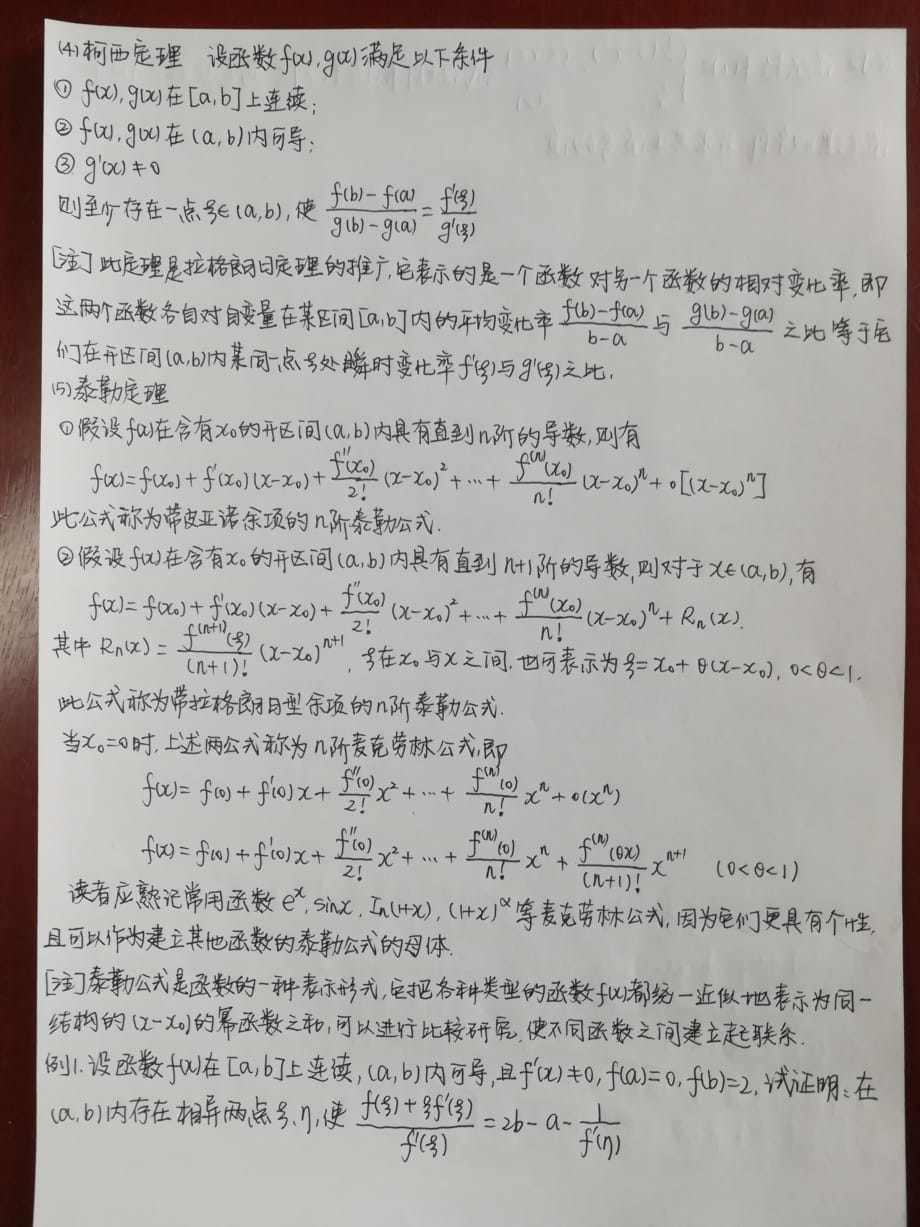 (4) 柯西定理 设函数f(x), g(x)满足以下条件
① f(x), g(x)在[a,b]上连续;
② f(x), g(x)在(a,b)内可导;
③ g'(x)≠0
则至少存在一点ξ∈(a,b), 使 \frac{f(b)-f(a)}{g(b)-g(a)} = \frac{f'(ξ)}{g'(ξ)}
[注] 此定理是拉格朗日定理的推广, 它表示的是一个函数对另一个函数的相对变化率, 即
这两个函数各自对自变量在某区间[a,b]内的平均变化率 \frac{f(b)-f(a)}{b-a} 与 \frac{g(b)-g(a)}{b-a} 之比等于它
们在开区间(a,b)内某同一点ξ处瞬时变化率f'(ξ)与g'(ξ)之比.
(5) 泰勒定理
①假设f(x)在含有x₀的开区间(a,b)内具有直到n阶的导数, 则有
f(x)=f(x₀)+f'(x₀)(x-x₀)+\frac{f''(x₀)}{2!}(x-x₀)²+…+\frac{f^{(n)}(x₀)}{n!}(x-x₀)^n+o[(x-x₀)^n]
此公式称为带皮亚诺余项的n阶泰勒公式.
②假设f(x)在含有x₀的开区间(a,b)内具有直到n+1阶的导数, 则对于x∈(a,b), 有
f(x)=f(x₀)+f'(x₀)(x-x₀)+\frac{f''(x₀)}{2!}(x-x₀)²+…+\frac{f^{(n)}(x₀)}{n!}(x-x₀)^n+R_n(x).
其中 R_n(x)=\frac{f^{(n+1)}(ξ)}{(n+1)!}(x-x₀)^{n+1}, ξ在x₀与x之间. 也可表示为ξ=x₀+θ(x-x₀), 0<θ<1.
此公式称为带拉格朗日型余项的n阶泰勒公式.
当x₀=0时, 上述两公式称为n阶麦克劳林公式, 即
f(x)=f(0)+f'(0)x+\frac{f''(0)}{2!}x²+…+\frac{f^{(n)}(0)}{n!}x^n+o(x^n)
f(x)=f(0)+f'(0)x+\frac{f''(0)}{2!}x²+…+\frac{f^{(n)}(0)}{n!}x^n+\frac{f^{(n)}(θx)}{(n+1)!}x^{n+1} (0<θ<1)
读者应熟记常用函数e^x, sinx, In(1+x), (1+x)^α等麦克劳林公式, 因为它们更具有个性,
且可以作为建立其他函数的泰勒公式的母体.
[注]泰勒公式是函数的一种表示形式, 它把各种类型的函数f(x)都统一近似地表示为同一
结构的(x-x₀)的幂函数之和, 可以进行比较研究, 使不同函数之间建立起联系.
例1. 设函数f(x)在[a,b]上连续, (a,b)内可导, 且f'(x)≠0, f(a)=0, f(b)=2, 试证明: 在
(a,b)内存在相异两点ξ、η, 使 \frac{f(ξ)+ξf'(ξ)}{f'(ξ)} = 2b-a-\frac{1}{f'(η)}